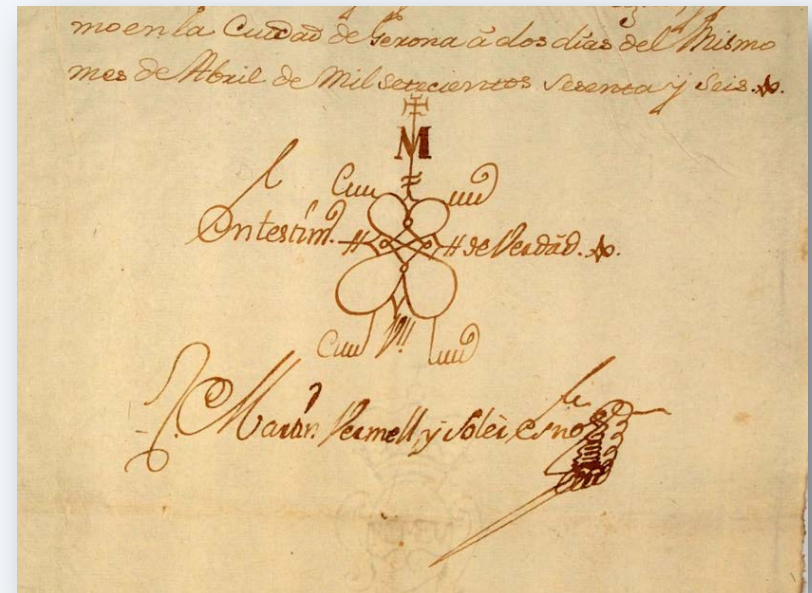 mo en la Ciudad de Gerona â dos dias del Mismo
mes de Abril de Mil setecientos sesenta y seis.
M
En testim.º de Verdâd.
Martin Vermell, y Soler, Esno